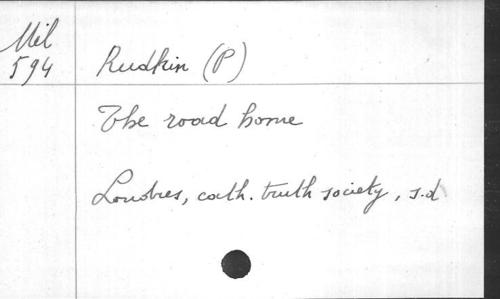 Mil
594
Rudkin (P)
The road home
Londres, cath. truth society, s.d